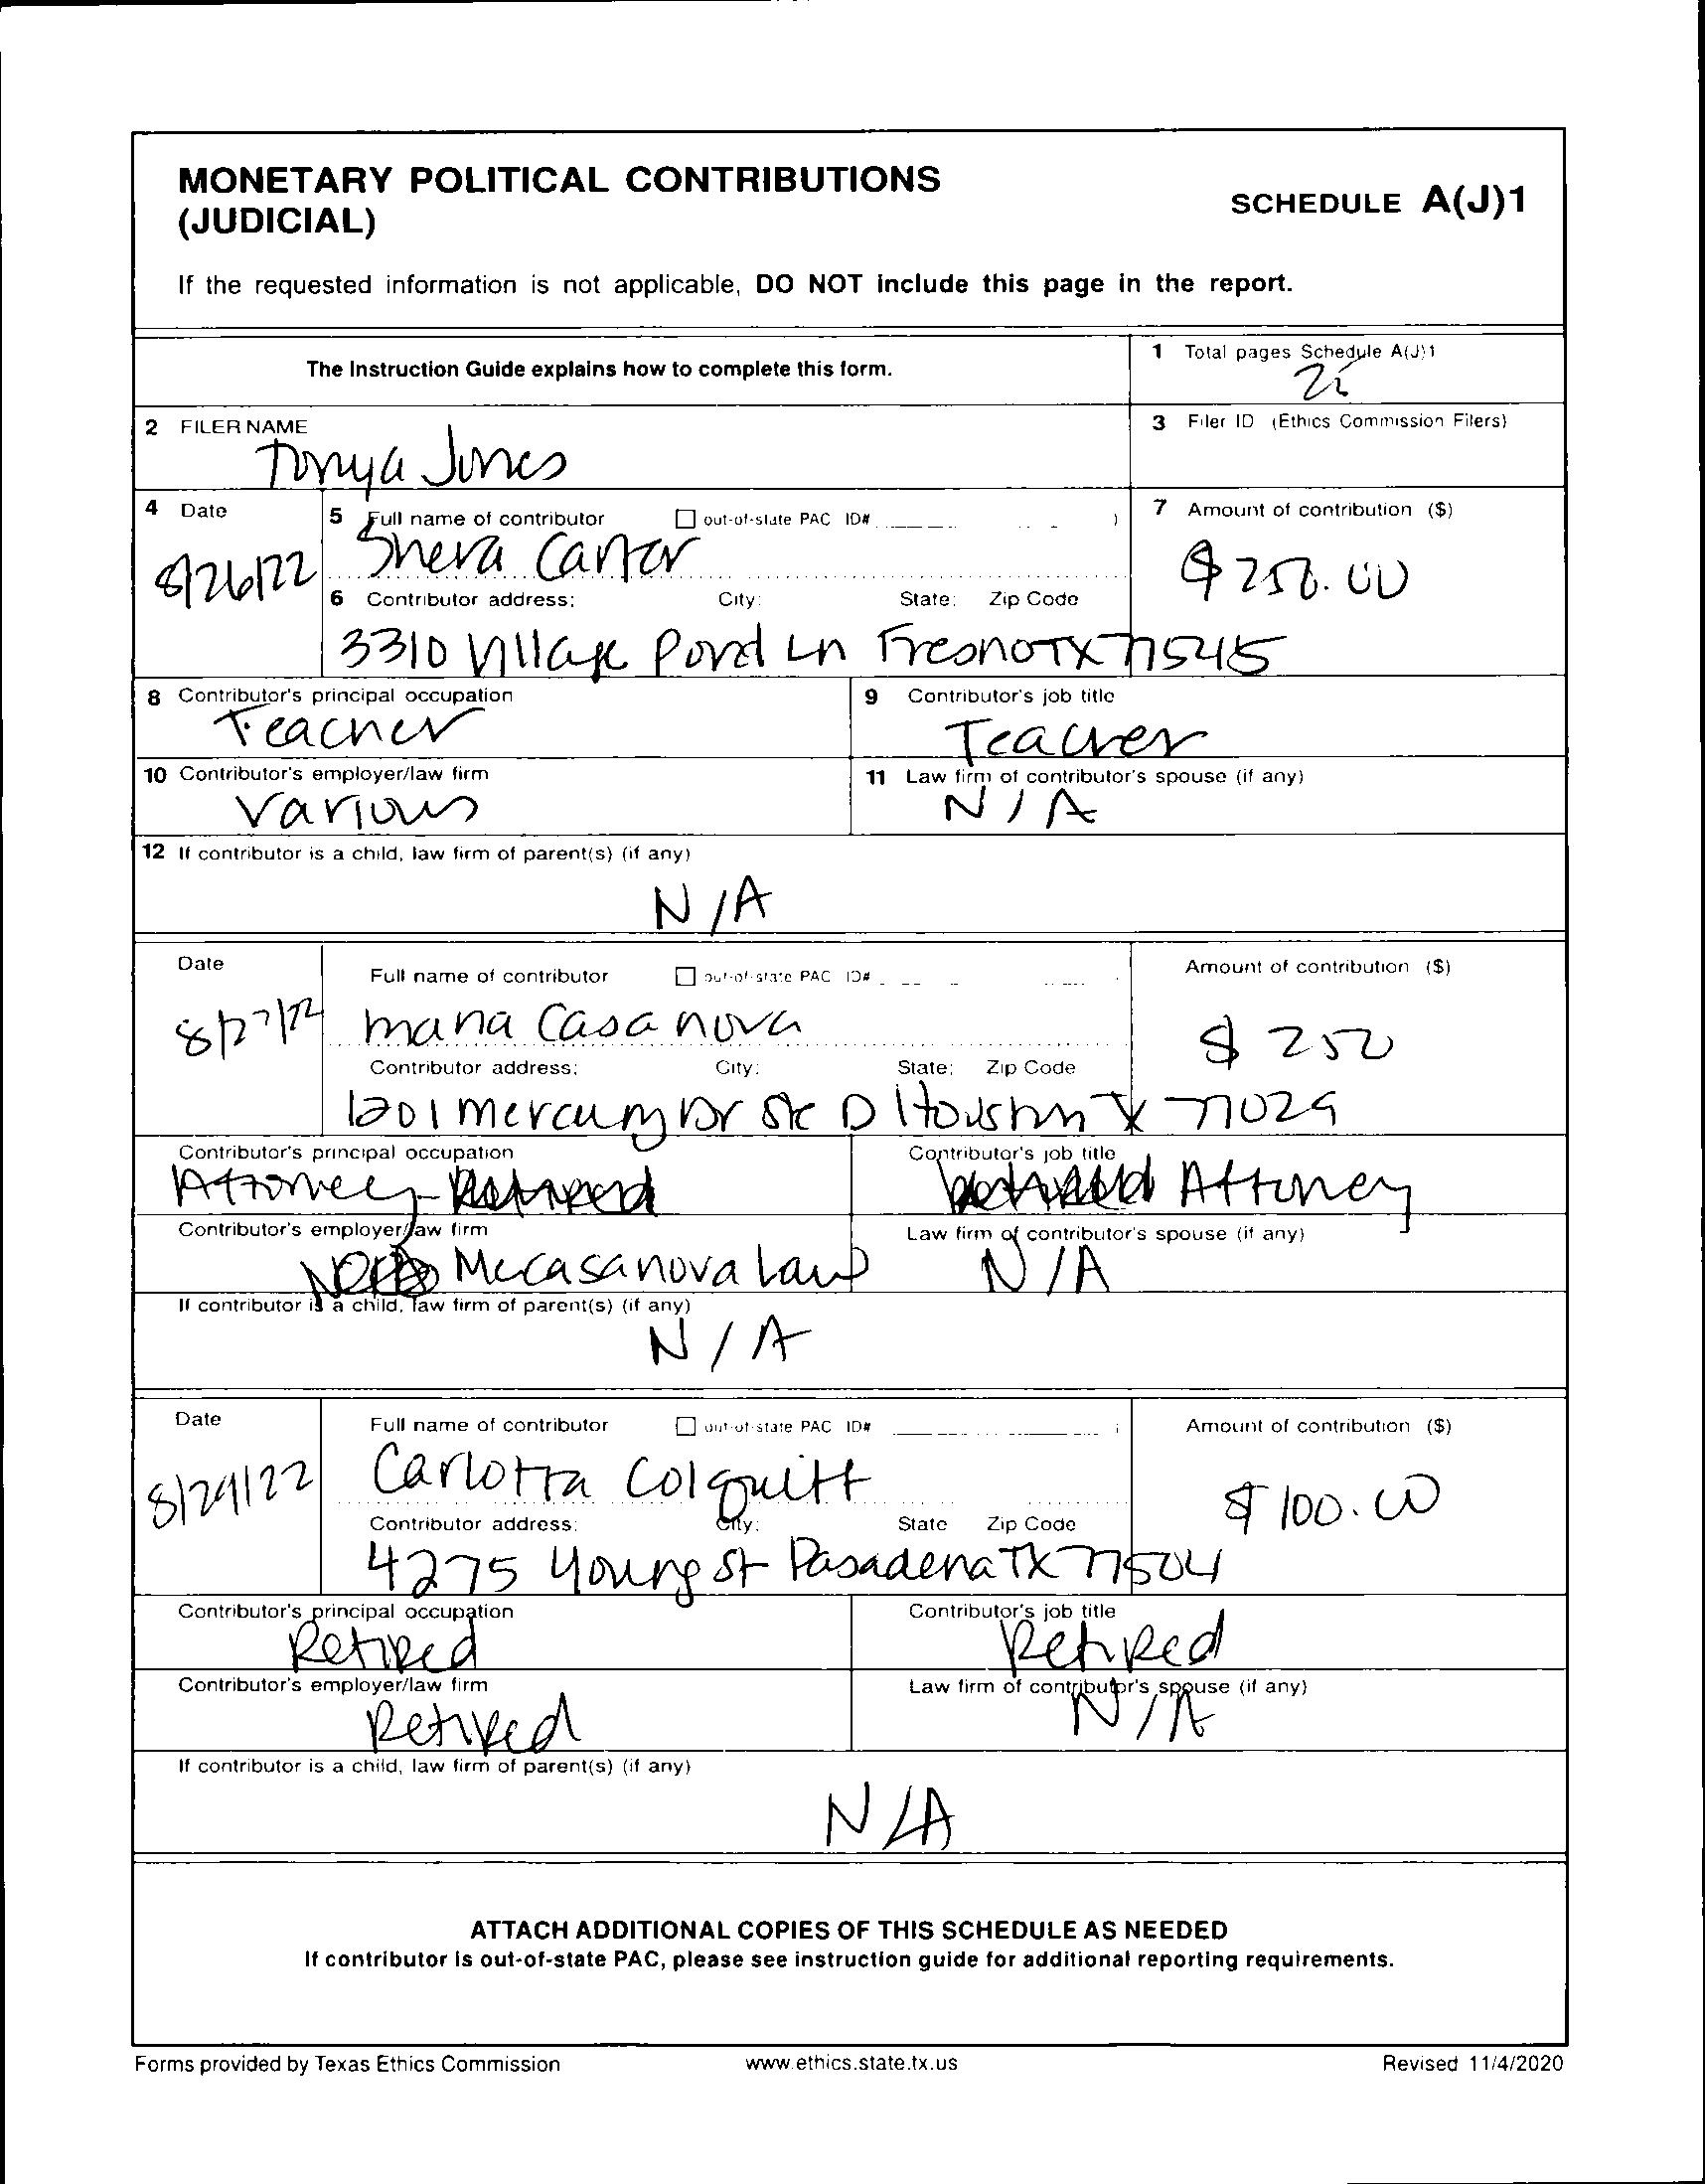 MONETARY POLITICAL CONTRIBUTIONS
(JUDICIAL)
SCHEDULE A(J)1
If the requested information is not applicable, DO NOT include this page in the report.
The Instruction Guide explains how to complete this form.
1 Total pages Schedule A(J)1
2 FILER NAME
Tonya Jones
3 Filer ID (Ethics Commission Filers)
4 Date
8/26/22
5 Full name of contributor
out-of-state PAC ID#
)
Carter
7 Amount of contribution ($)
6 Contributor address; City; State; Zip Code
3310 Village Pond Ln Fresno TX 77545
8 Contributor's principal occupation
Teacher
9 Contributor's job title
Teacher
10 Contributor's employer/law firm
Various
11 Law firm of contributor's spouse (if any)
N/A
12 If contributor is a child, law firm of parent(s) (if any)
N/A
Date
8/27/22
Full name of contributor
out-of-state PAC ID#
Maria Casanova
Amount of contribution ($)
$ 250
Contributor address; City; State; Zip Code
1201 Mercury Dr Ste D Houston TX 77029
Contributor's principal occupation
Attorney
Contributor's job title
Attorney
Contributor's employer/law firm
Mccasanova Law
Law firm of contributor's spouse (if any)
N/A
If contributor is a child, law firm of parent(s) (if any)
N/A
Date
8/29/22
Full name of contributor
out-of-state PAC ID#
Carlotta Colquitt
Amount of contribution ($)
$ 100.00
Contributor address; City; State Zip Code
4275 Young St Pasadena TX 77504
Contributor's principal occupation
Retired
Contributor's job title
Retired
Contributor's employer/law firm
Retired
Law firm of contributor's spouse (if any)
N/A
If contributor is a child, law firm of parent(s) (if any)
N/A
ATTACH ADDITIONAL COPIES OF THIS SCHEDULE AS NEEDED
If contributor is out-of-state PAC, please see instruction guide for additional reporting requirements.
Forms provided by Texas Ethics Commission
www.ethics.state.tx.us
Revised 11/4/2020